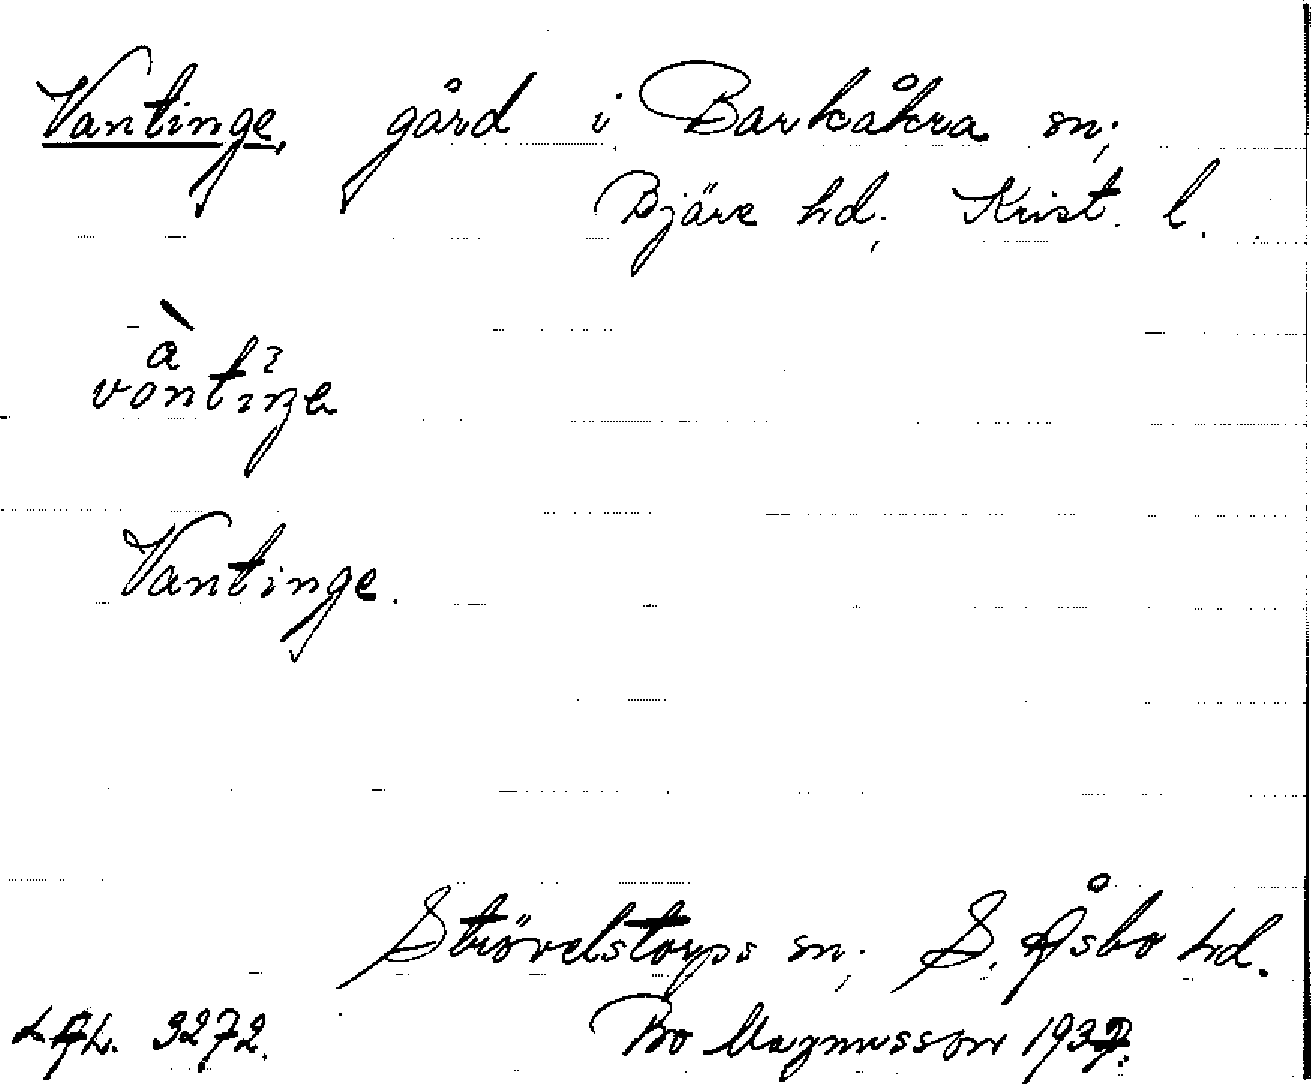 Vantinge, gård i Barkåkra sn;
Bjäre hd; Krist. l.
vàntiŋe
Vantinge.
Strövelstorps sn; S. Åsbo hd.
LAL. 3272. Bo Magnusson 1937.